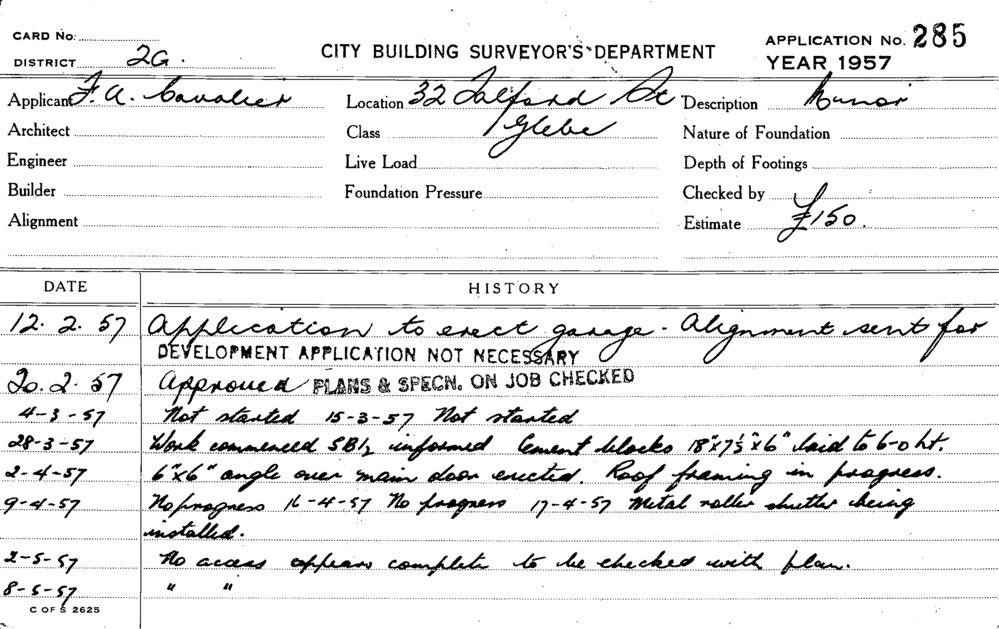 CARD No:
DISTRICT 2G.
CITY BUILDING SURVEYOR'S DEPARTMENT
APPLICATION No. 285
YEAR 1957
Applicant F. A. Cavalier Location 32 Talford St Description Minor
Architect Class Glebe Nature of Foundation
Engineer Live Load Depth of Footings
Builder Foundation Pressure Checked by
Alignment Estimate £150.
DATE HISTORY
12. 2. 57 Application to erect garage - Alignment sent for
DEVELOPMENT APPLICATION NOT NECESSARY
20. 2. 57 Approved PLANS & SPECN. ON JOB CHECKED
4-3-57 Not started 15-3-57 Not started
28-3-57 Work commenced SB1/2 informed Cement blocks 18"x7½"x6" laid to 6-0 ht.
2-4-57 6"x6" angle over main door erected. Roof framing in progress.
9-4-57 No progress 16-4-57 No progress 17-4-57 Metal roller shutter being
installed.
2-5-57 No access appears complete to be checked with plan.
8-5-57 " "
C OF S 2625